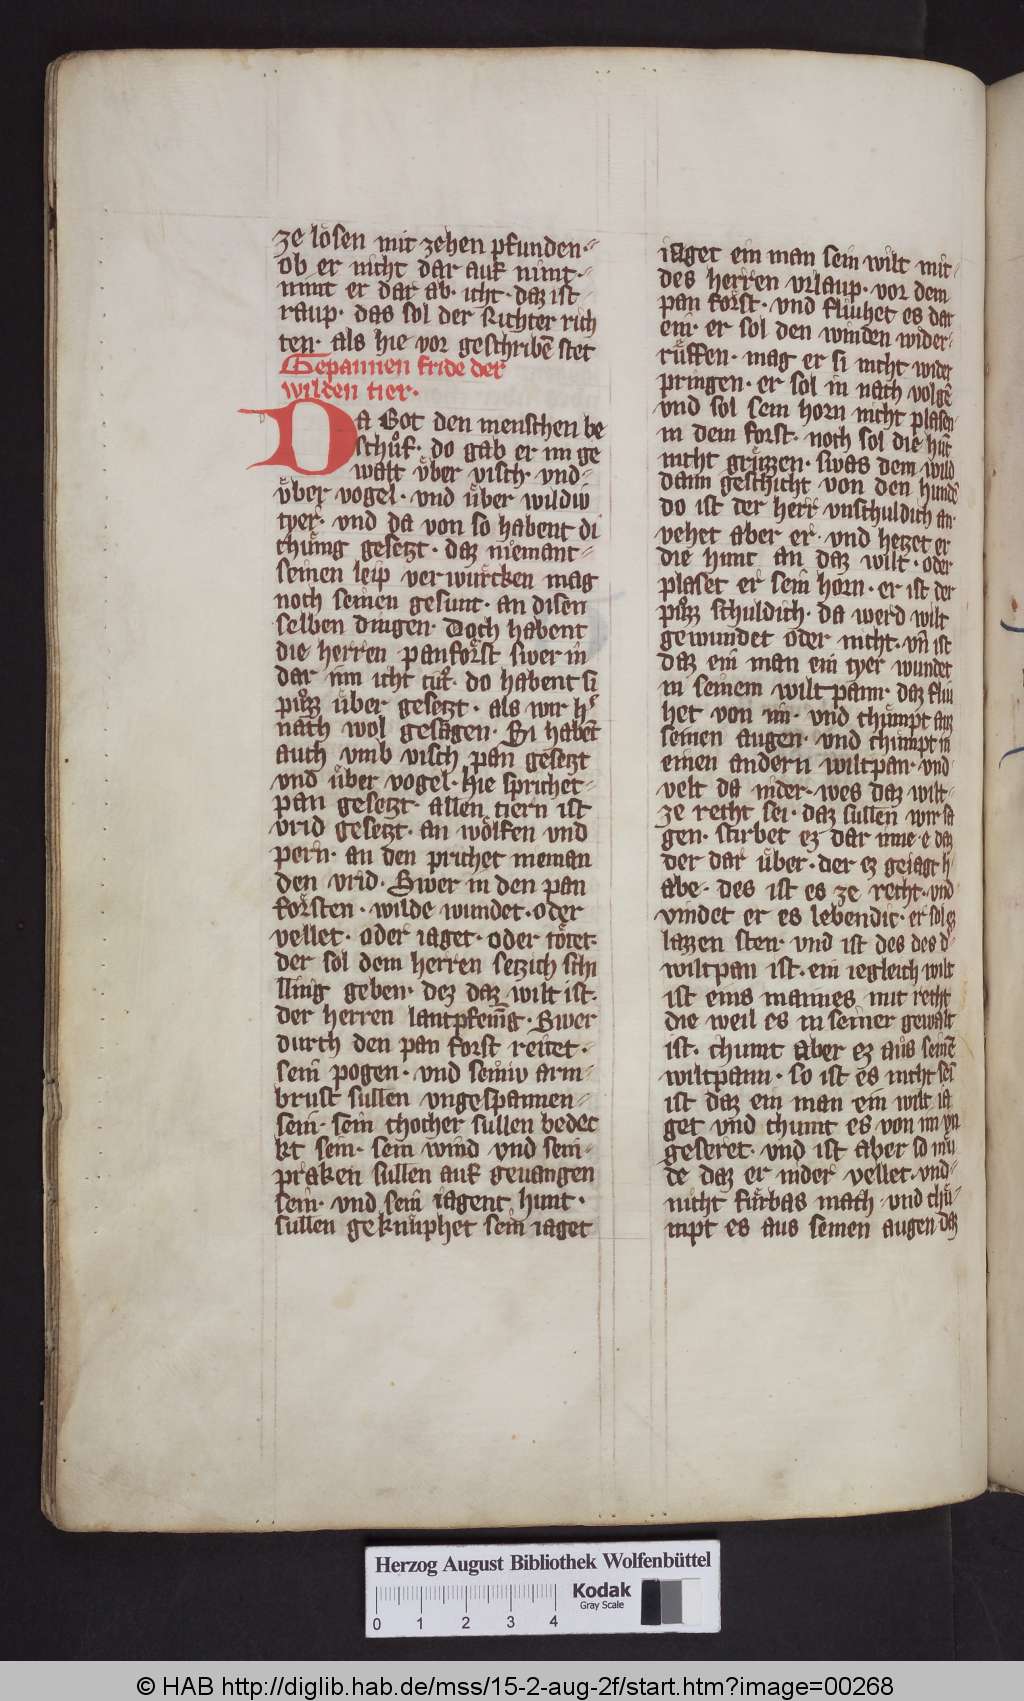 ze lösen mit zehen pfunden.
ob er nicht dar auf nimt.
nimt er dar ab icht. daz ist
raup. das sol der Richter rich
ten. als hie vor geschribē stet
Gepannen fride der
wilden tier.
DA Got den menschen be
schůf. do gab er im ge
walt v̈ber visch. vnd
v̈ber vogel. vnd v̈ber wildiv
tyer. vnd da von so habent di
chünig gesetzt. daz niemant
seinen leip verwürcken mag
noch seinen gesunt. an disen
selben dingen. Doch habent
die herren panförst swer in
dar inn icht tůt. do habent si
půzz über gesetzt. als wir h
nach wol gesagen. Si habēt
auch vmb visch pan gesetzt
vnd über vogel. hie sprichet
pan gesetzt. allen tiern ist
vrid gesetzt. an wölfen vnd
pern. an den prichet nieman
den vrid. Swer in den pan
försten. wilde wundet. oder
vellet. oder iaget. oder tötet.
der sol dem herren setzich schi
lling geben. dez daz wilt ist.
der herren lantpfeniḡ. Swer
durch den pan forst reitet.
sein pogen. vnd seiniv arm
brust sullen vngespannen
sein. sein chocher sullen bedec
kt sein. sein wind vnd sein
praken sullen auf geuangen
sein. vnd sein iagent hunt.
sullen geknüphet sein iaget
iaget ein man sein wilt mit
des herren vrlaup. vor dem
pan forst. vnd fliuhet es dar
ein. er sol den winden wider
rüffen. mag er si nicht wider
pringen. er sol in nach volgē
vnd sol sein horn nicht plasen
in dem forst. noch sol die hūt
nicht grüzzen. swas dem wild
dann geschicht von den hundē
do ist der herr vnschuldich an.
vehet aber er. vnd hetzet er
die hunt an daz wilt. oder
plaset er sein horn. er ist der
půzz schuldich. da werd wilt
gewundet oder nicht. vn̄ ist
daz ein man ein tyer wundet
in seinem wiltpann. daz fliu
het von im. vnd chümpt auz
seinen augen. vnd chumpt in
einen andern wiltpan. vnd
velt da nider. wes daz wilt
ze recht sei. daz sullen wir sa
gen. stirbet ez dar inne e daz
der dar über. der ez geiagt h
abe. des ist es ze recht. vnd
vindet er es lebendic. er sol ez
lazzen sten. vnd ist des des d
wiltpan ist. ein iegleich wilt
ist eins mannes mit recht
die weil es in seiner gewalt
ist. chumt aber ez aus seinē
wiltpann. so ist es nicht sein
ist daz ein man ein wilt ia
get vnd chumt es von im vn
geseret. vnd ist aber so mü
de daz er nider vellet. vnd
nicht fürbas mach. vnd chu
mpt es aus seinen augen daz
Herzog August Bibliothek Wolfenbüttel
Kodak
Gray Scale
0 1 2 3 4
© HAB http://diglib.hab.de/mss/15-2-aug-2f/start.htm?image=00268